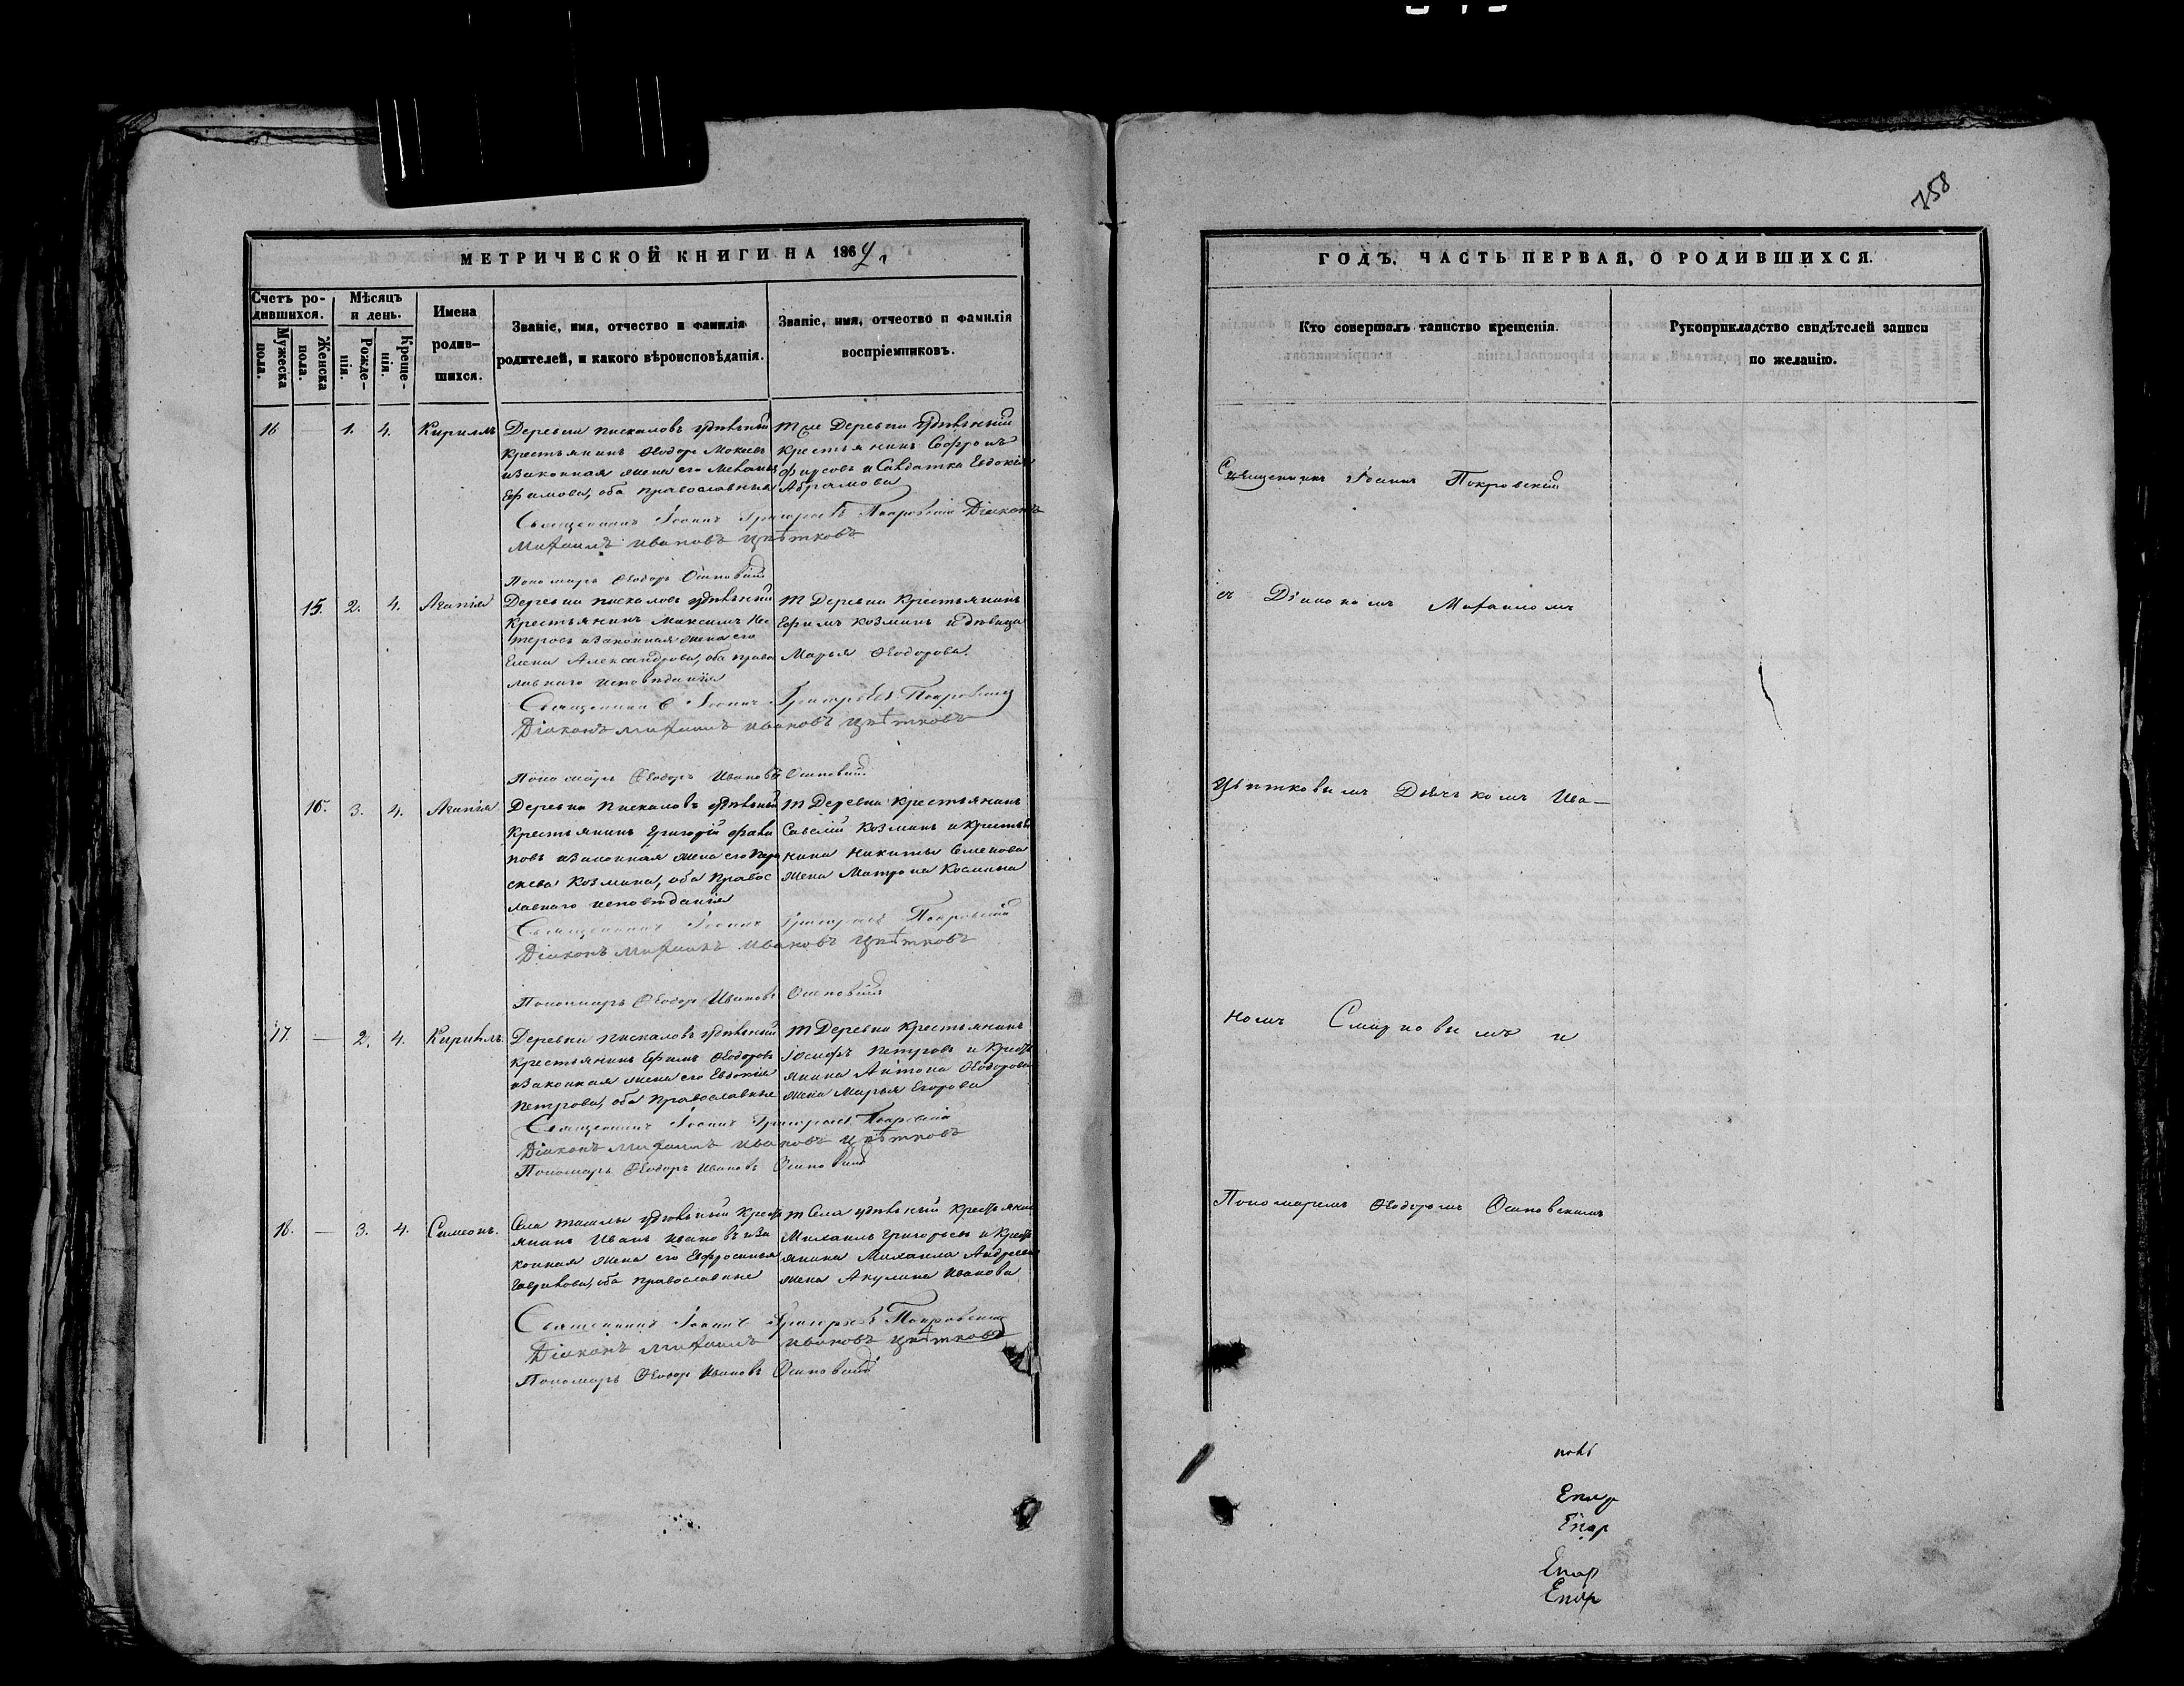 758
МЕТРИЧЕСКОЙ КНИГИ НА 1864
Счетъ родившихся.
Мужеска пола.
Женска пола.
Мѣсяцъ и день.
Рожденія.
Крещенія.
Имена родившихся.
Званіе, имя, отчество и фамилія родителей, и какого вѣроисповѣданія.
Званіе, имя, отчество и фамилія воспріемниковъ.
16 — 1. 4. Кириллъ
Деревни Пискаловъ удѣльный
Крестьянинъ Ѳеодоръ Мокеевъ
и законная жена его
Ефимова, оба православные
Деревни удѣльный
Крестьянинъ Софронъ
и Солдатка Евдокія
Абрамова
Священникъ Іоаннъ Григорьевъ Покровскій Діаконъ
Михаилъ Ивановъ Цвѣтковъ
Пономарь Ѳеодоръ Осиновскій
15. 2. 4. Агапія
Деревни Пискаловъ удѣльный
Крестьянинъ Максимъ Нес
теровъ и законная жена его
Елена Александрова, оба право
славнаго исповѣданія
Т Деревни Крестьянинъ
Ефимъ Козминъ и дѣвица
Марья Ѳеодорова.
Священникъ Іоаннъ Григорьевъ Покровскій
Діаконъ Михаилъ Ивановъ Цвѣтковъ
Пономарь Ѳеодоръ Ивановъ Осиновскій
16. 3. 4. Агапія
Деревни Пискаловъ удѣльный
Крестьянинъ Григорій
и законная жена его Пара
скева Козмина, оба правос
лавнаго исповѣданія
Т Деревни Крестьянинъ
Савелій Козминъ и крестья
нина Никиты Семенова
жена Матрона Космина
Священникъ Іоаннъ Григорьевъ Покровскій
Діаконъ Михаилъ Ивановъ Цвѣтковъ
Пономарь Ѳеодоръ Ивановъ Осиновскій
17. — 2. 4. Кириллъ.
Деревни Пискаловъ удѣльный
Крестьянинъ Ефимъ Ѳеодоровъ
и законная жена его Евдокія
Петрова, оба православные
Т Деревни Крестьянинъ
Іосифъ Петровъ и Крестья
янина Антона Ѳеодорова
жена Марья Егорова
Священникъ Іоаннъ Григорьевъ Покровскій
Діаконъ Михаилъ Ивановъ Цвѣтковъ
Пономарь Ѳеодоръ Ивановъ Осиновскій
18. — 3. 4. Симеонъ.
Села Ташлы удѣльный Крест
янинъ Иванъ Ивановъ и за
конная жена его Евфросинья
Гаврилова, оба православные
Т Села удѣльный Крестьянинъ
Михаилъ Григорьевъ и Крест
янина Михаила Андреева
жена Акулина Иванова
Священникъ Іоаннъ Григорьевъ Покровскій
Діаконъ Михаилъ Ивановъ Цвѣтковъ
Пономарь Ѳеодоръ Ивановъ Осиновскій
ГОДЪ. ЧАСТЬ ПЕРВАЯ, О РОДИВШИХСЯ.
Кто совершалъ таинство крещенія.
Рукоприкладство свидѣтелей записи
по желанію.
Священникъ Іоаннъ Покровскій
съ Діакономъ Михаиломъ
Цвѣтковымъ Дьячкомъ Ива—
номъ Смирновымъ и
Пономаремъ Ѳеодоромъ Осиновскимъ
Епар
Епар
Епар
Епар